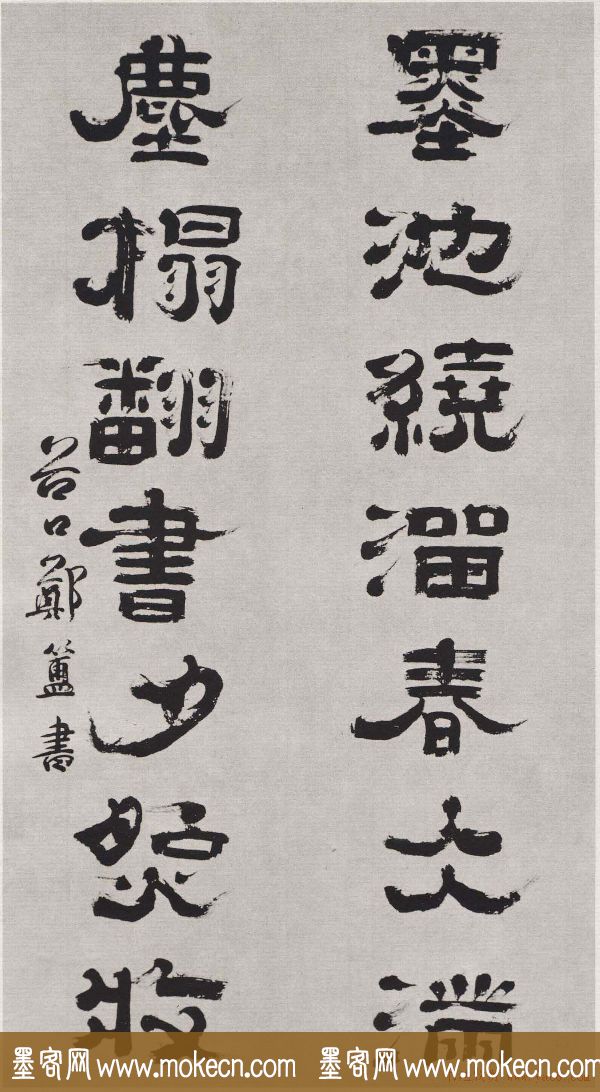 墨池繞溜春仌滿
塵榻翻書夕照收
谷口鄭簠書
墨客网 www.mokecn.com 墨客网 www.mokecn.com